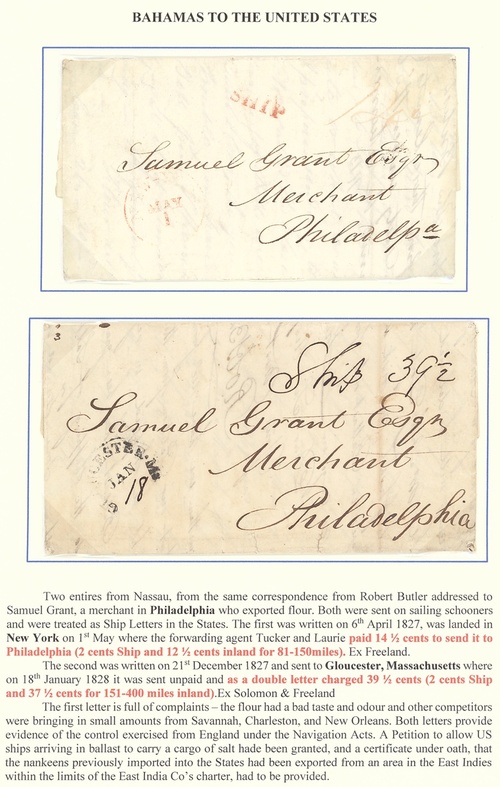 BAHAMAS TO THE UNITED STATES
SHIP
Samuel Grant Esqr
Merchant
Philadelpa
MAY
1
Ship 39½
Samuel Grant Esqr
Merchant
Philadelphia
JAN
18
Two entires from Nassau, from the same correspondence from Robert Butler addressed to
Samuel Grant, a merchant in Philadelphia who exported flour. Both were sent on sailing schooners
and were treated as Ship Letters in the States. The first was written on 6th April 1827, was landed in
New York on 1st May where the forwarding agent Tucker and Laurie paid 14 ½ cents to send it to
Philadelphia (2 cents Ship and 12 ½ cents inland for 81-150miles). Ex Freeland.
The second was written on 21st December 1827 and sent to Gloucester, Massachusetts where
on 18th January 1828 it was sent unpaid and as a double letter charged 39 ½ cents (2 cents Ship
and 37 ½ cents for 151-400 miles inland).Ex Solomon & Freeland
The first letter is full of complaints – the flour had a bad taste and odour and other competitors
were bringing in small amounts from Savannah, Charleston, and New Orleans. Both letters provide
evidence of the control exercised from England under the Navigation Acts. A Petition to allow US
ships arriving in ballast to carry a cargo of salt hade been granted, and a certificate under oath, that
the nankeens previously imported into the States had been exported from an area in the East Indies
within the limits of the East India Co's charter, had to be provided.